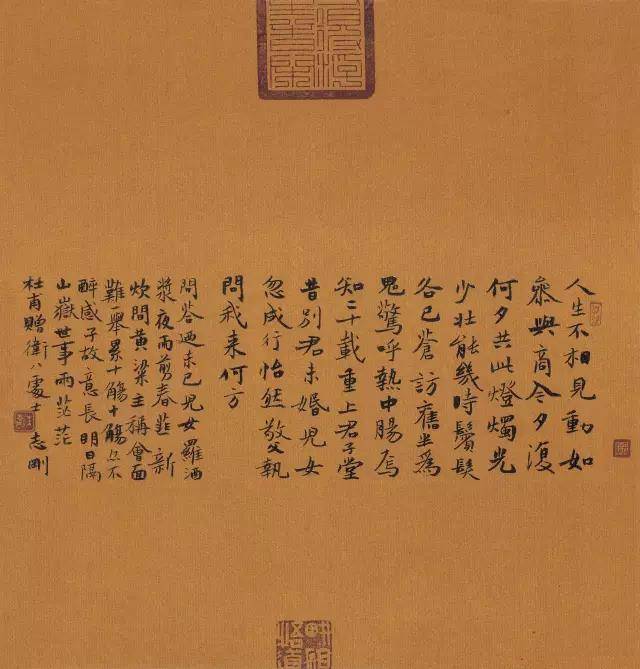 人生不相見動如
參與商今夕復
何夕共此燈燭光
少壯能幾時鬢髮
各已蒼訪舊半為
鬼驚呼熱中腸焉
知二十載重上君子堂
昔別君未婚兒女
忽成行怡然敬父執
問我來何方
問答迺未已兒女羅酒
漿夜雨剪春韭新
炊問黃梁主稱會面
難舉累十觴十觴亦不
醉感子故意長明日隔
山嶽世事兩茫茫
杜甫贈衛八處士 志剛